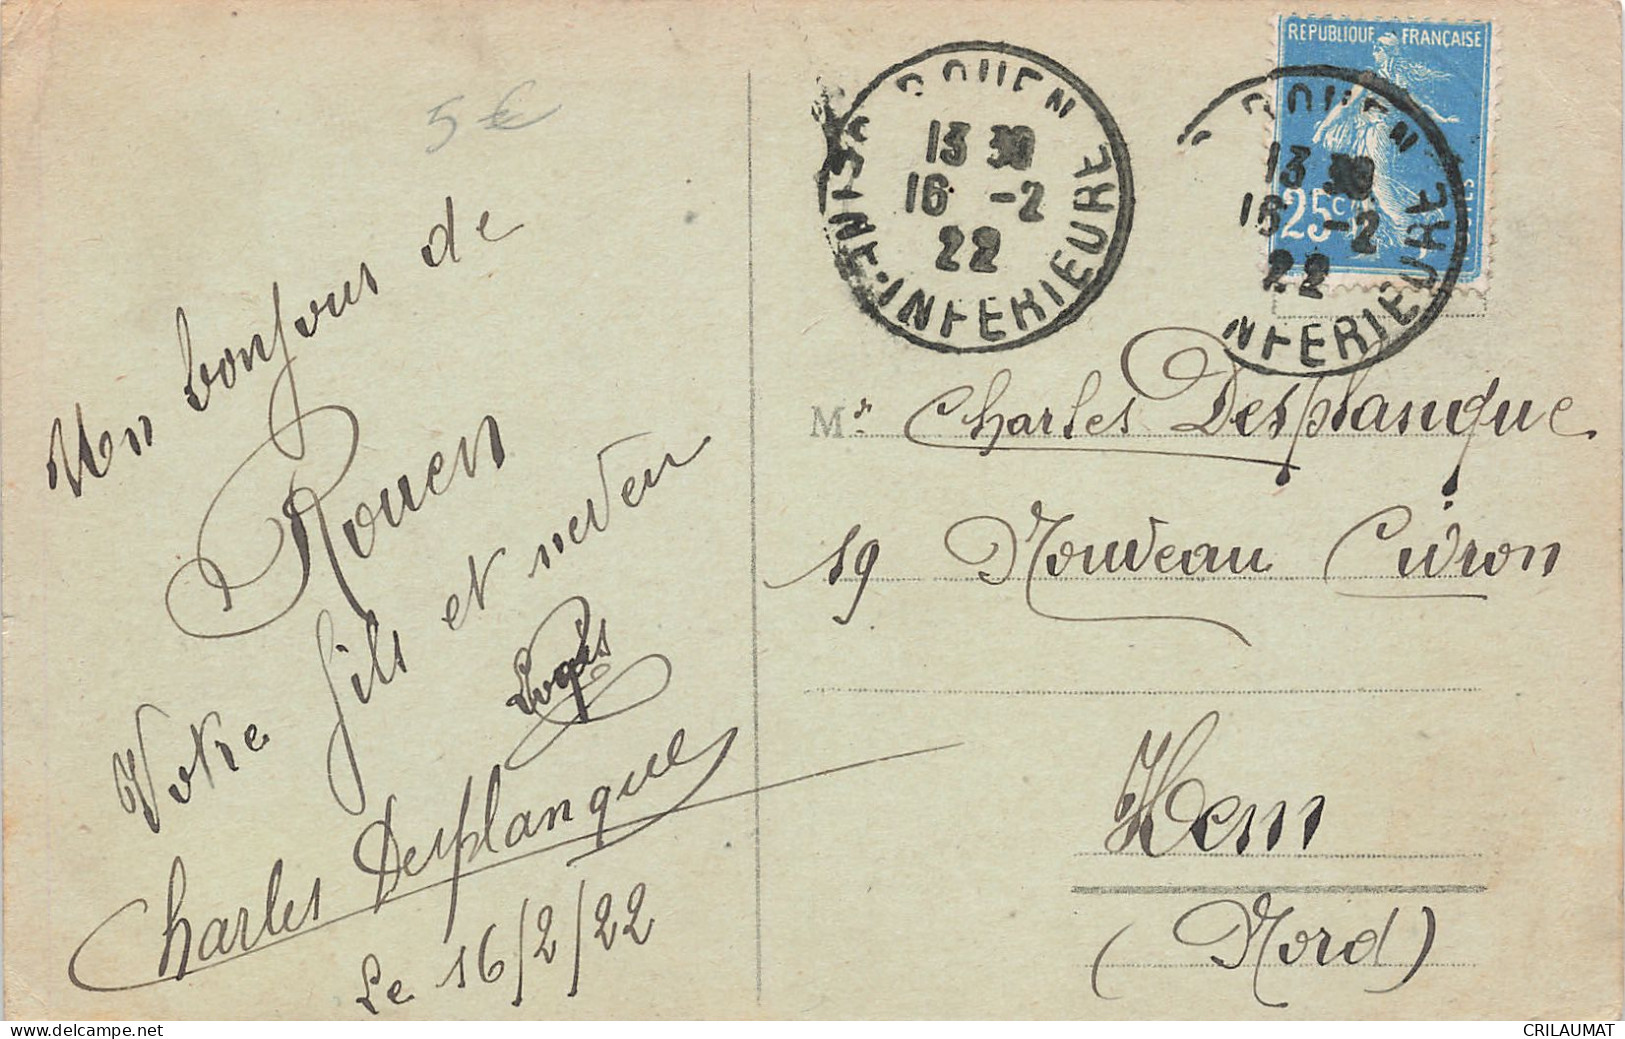 5€
Un bonjour de
Rouen
Votre fils et neveu
Charles Desplanque
Le 16/2/22
ROUEN
13 30
16 -2
22
SEINE-INFERIEURE
REPUBLIQUE FRANÇAISE
25c
POSTES
ROUEN
13 30
16 -2
22
INFERIEURE
Mr Charles Desplanque
19 Nouveau Civron
Hem
(Nord)
CRILAUMAT
https://www.delcampe.net